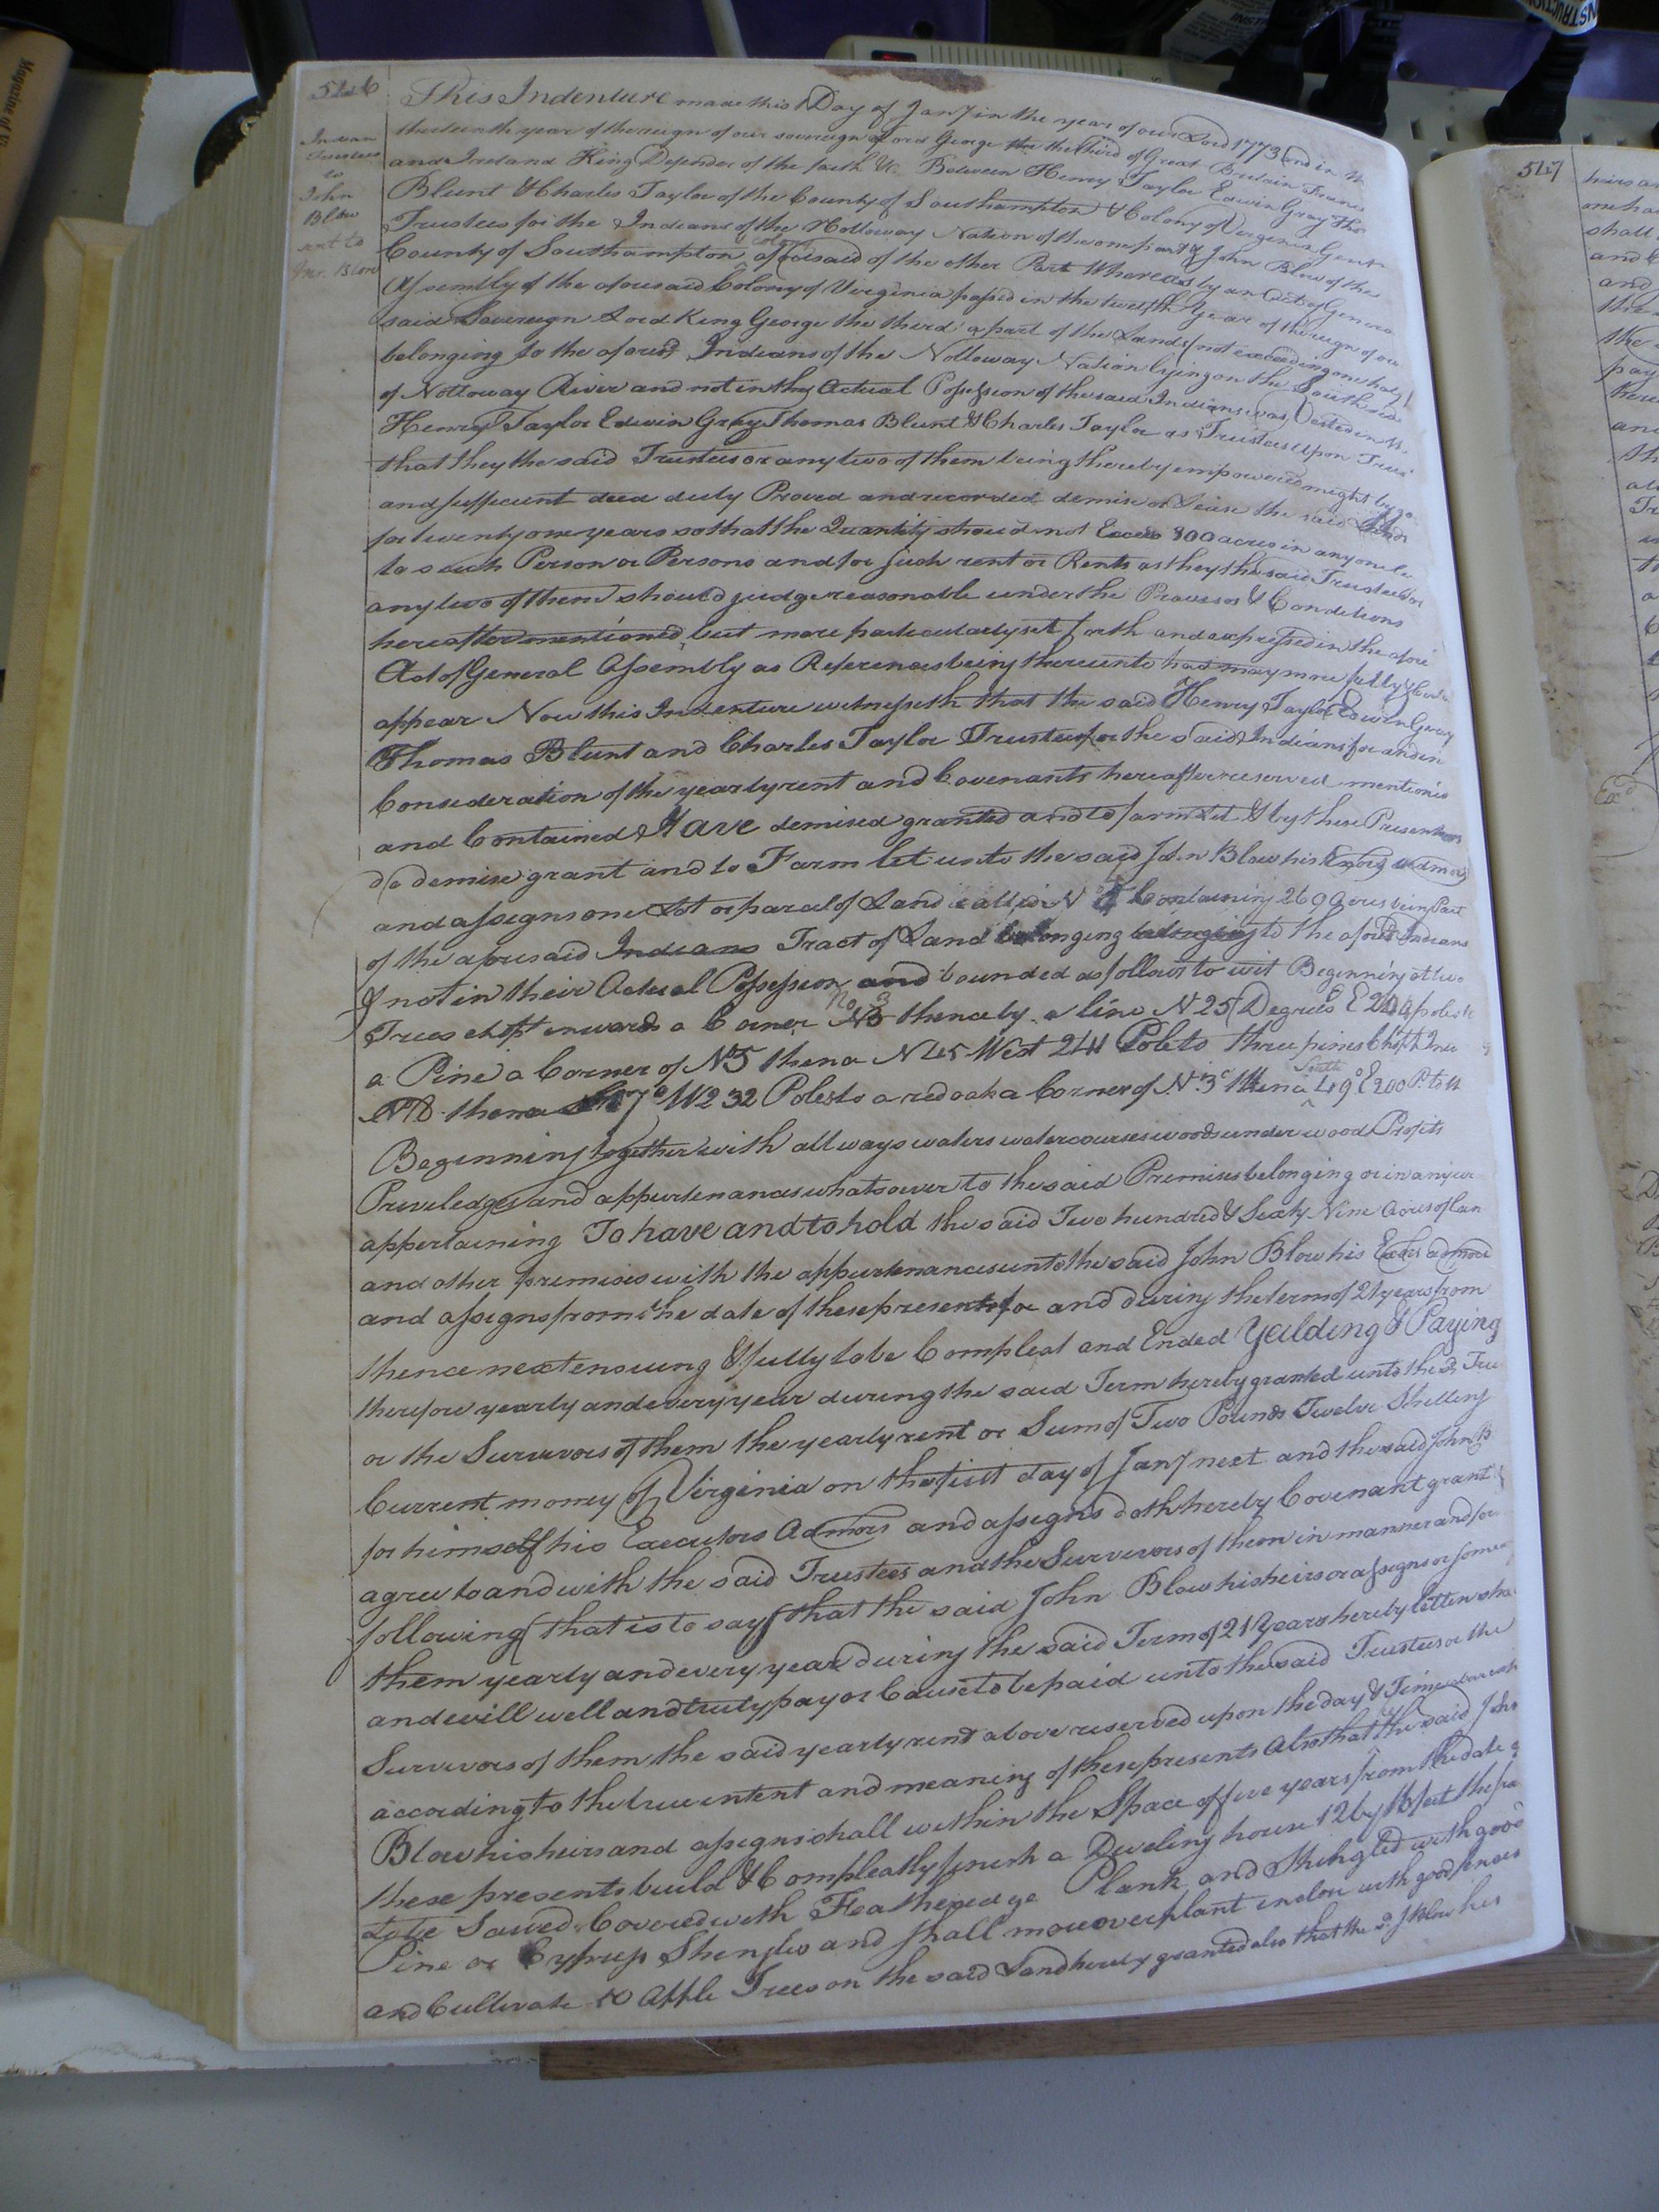 516
Indian
Trustees
to
John
Blow
sent to
Jno. Blow
This Indenture made this 1 Day of Jany in the year of our Lord 1773 and in the
thirteenth year of the reign of our sovereign Lord George the the third of Great Britain France
and Ireland King Defender of the faith &c. Between Henry Taylor Edwin Gray Thos
Blunt & Charles Taylor of the County of Southampton & Colony of Virginia Gent
Trustees for the Indians of the Nottoway Nation of the one part & John Blow of the
County of Southampton & colony aforesaid of the other Part Whereas by an Act of Genera
Assembly of the aforesaid Colony of Virginia passed in the twelfth Year of the reign of our
said Sovereign Lord King George the third a part of the Lands (not exceeding one half)
belonging to the aforesd Indians of the Nottoway Nation lying on the South side
of Nottoway River and not in the Actual Possession of the said Indians was Vested in
Henry Taylor Edwin Gray Thomas Blunt & Charles Taylor as Trustees upon Trust
that they the said Trustees or any two of them being thereby empowered might by
and suffecient deed duly Proved and recorded demise or Lease the said Lands
for twenty one years so that the Quantity should not Exceed 300 acres in any one
to such Person or Persons and for such rent or Rents as they the said Trustees or
any two of them should judge reasonable under the Provisos & Conditions
hereafter mentioned but more particularly set forth and expressed in the afore
Act of General Assembly as References being thereunto had may more fully &
appear Now this Indenture witnesseth that the said Henry Taylor Edwin Gray
Thomas Blunt and Charles Taylor Trustees for the said Indians for and in
Consideration of the yearly rent and Covenants hereafter reserved mentioned
and Contained Have demised granted and to farm let & by these Presents
do demise grant and to Farm let unto the said John Blow his Exors admors
and assigns one Lot or parcel of Land called No Containing 269 Acres being Part
of the aforesaid Indians Tract of Land belonging belonging to the aforesd Indians
& not in their Actual Possession and bounded as follows to wit Beginning at two
Trees chopt inwards a Corner No 3 thence by a line N 25 Degrees E 244 poles to
a Pine a Corner of No5 thence N 45 West 241 Pole to three pines Chopt
No8 thence W 232 Poles to a red oak a Corner of No. 3 thence South 49° E 200 P. to the
Beginning together with all ways waters watercourses woods under wood Profits
Preveledges and appurtenances whatsoever to the said Premises belonging or in any
appertaining To have and to hold the said Two hundred & Sixty Nine Acres of Lan
and other premises with the appurtenances unto the said John Blow his Exors admors
and assigns from the date of these presents for and during the term of 21 years from
thence next ensuing & fully to be Compleat and Ended Yeilding & Paying
therefore yearly and every year during the said Term hereby granted unto the sd Tru
or the Survivors of them the yearly rent or Sum of Two Pounds Twelve Shillings
Current money of Virginia on the first day of Jany next and the said John B
for himself his Executors Admors and assigns doth hereby Covenant grant &
agree to and with the said Trustees and the Survivors of them in manner and for
following (that is to say) that the said John Blow his heirs or assigns or some
them yearly and every year during the said Term of 21 Years hereby letten sha
and will well and truly pay or Cause to be paid unto the said Trustees or the
Survivors of them the said yearly rent above reserved upon the day & Time
according to the true intent and meaning of these presents Also that the said John
Blow his heirs and assigns shall within the Space of five years from the date of
these presents build & Compleatly finish a Dweling house 12 by 16 feet the fra
to be Sawed Covered with Featheredge Plank and Shingled with good
Pine or Cypress Shingles and shall moreover plant inclose with good fences
and Cultivate Apple Trees on the said Land hereby granted also that the sd J Blow his
517
heirs
one ha
shall
and
and
the
the
pay
and